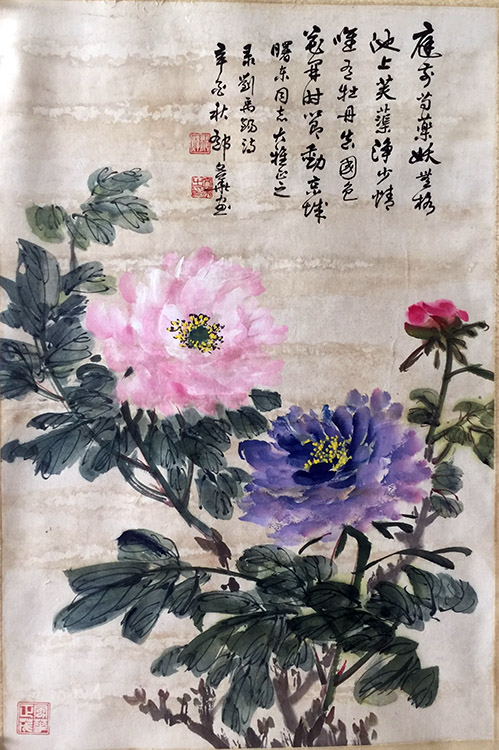 庭前芍藥妖無格
池上芙蕖淨少情
唯有牡丹真國色
花開时節動京城
曙东同志大雅正之
录劉禹錫诗
辛酉秋